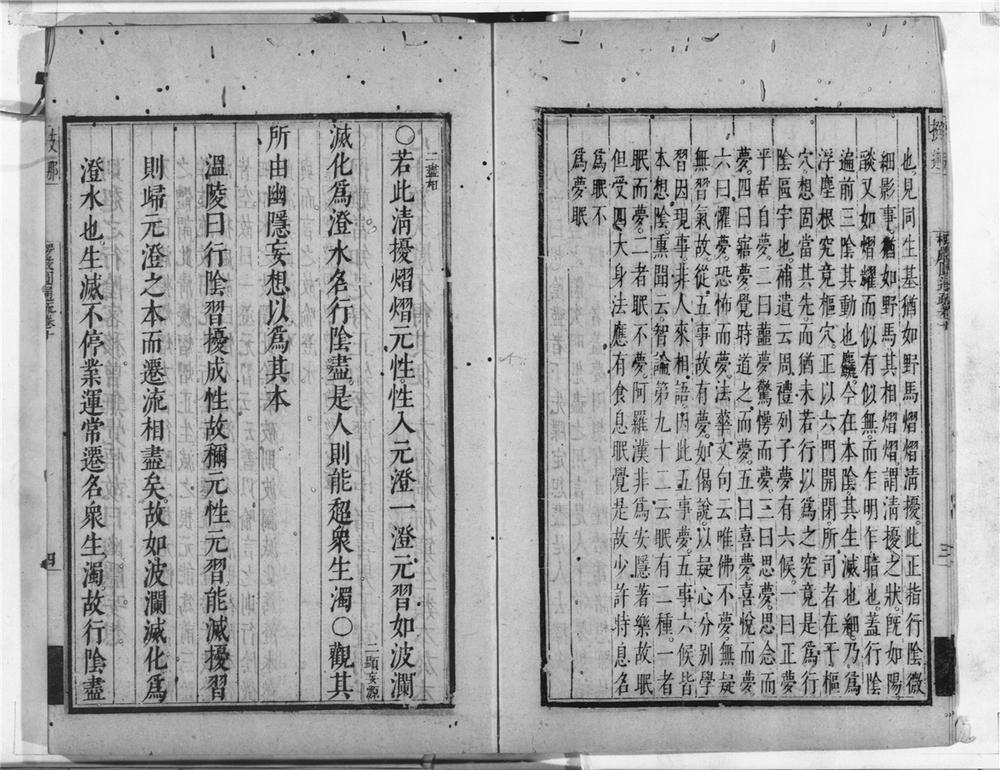 也見同生基猶如野馬熠熠清擾此正指行陰微
細影事猶如野馬其相熠熠謂清擾之狀既如陽
燄又如熠耀而似有似無而乍明乍暗也蓋行陰
遍前三陰其動也麤今在本陰其生滅也細乃爲
浮塵根究竟樞穴正以六門開閉所司者在于樞
穴想固當其先而猶未若行以爲之究竟是爲行
陰區宇也補遺云周禮列子夢有六候一曰正夢
平居自夢二曰蘁夢驚愕而夢三曰思夢思念而
夢四曰寤夢覺時道之而夢五曰喜夢喜悅而夢
六曰懼夢恐怖而夢法華文句云唯佛不夢無疑
無習氣故從五事故有夢如偈說以疑心分別學
習因現事非人來相語因此五事夢五事六候皆
本想陰熏聞云智論第九十三云眠有二種一者
眠而夢二者眠不夢阿羅漢非爲安隱著樂故眠
但受四大身法應有食息眠覺是故少許時息名
爲眠不
爲夢眠
楞嚴圓通疏卷十
三
二盡相
○若此清擾熠熠元性性入元澄一澄元習如波瀾
滅化爲澄水名行陰盡是人則能超衆生濁○觀其
三顯妄源
所由幽隱妄想以爲其本
溫陵曰行陰習擾成性故稱元性元習能滅擾習
則歸元澄之本而遷流相盡矣故如波瀾滅化爲
澄水也生滅不停業運常遷名衆生濁故行陰盡
楞嚴圓通疏卷十
四